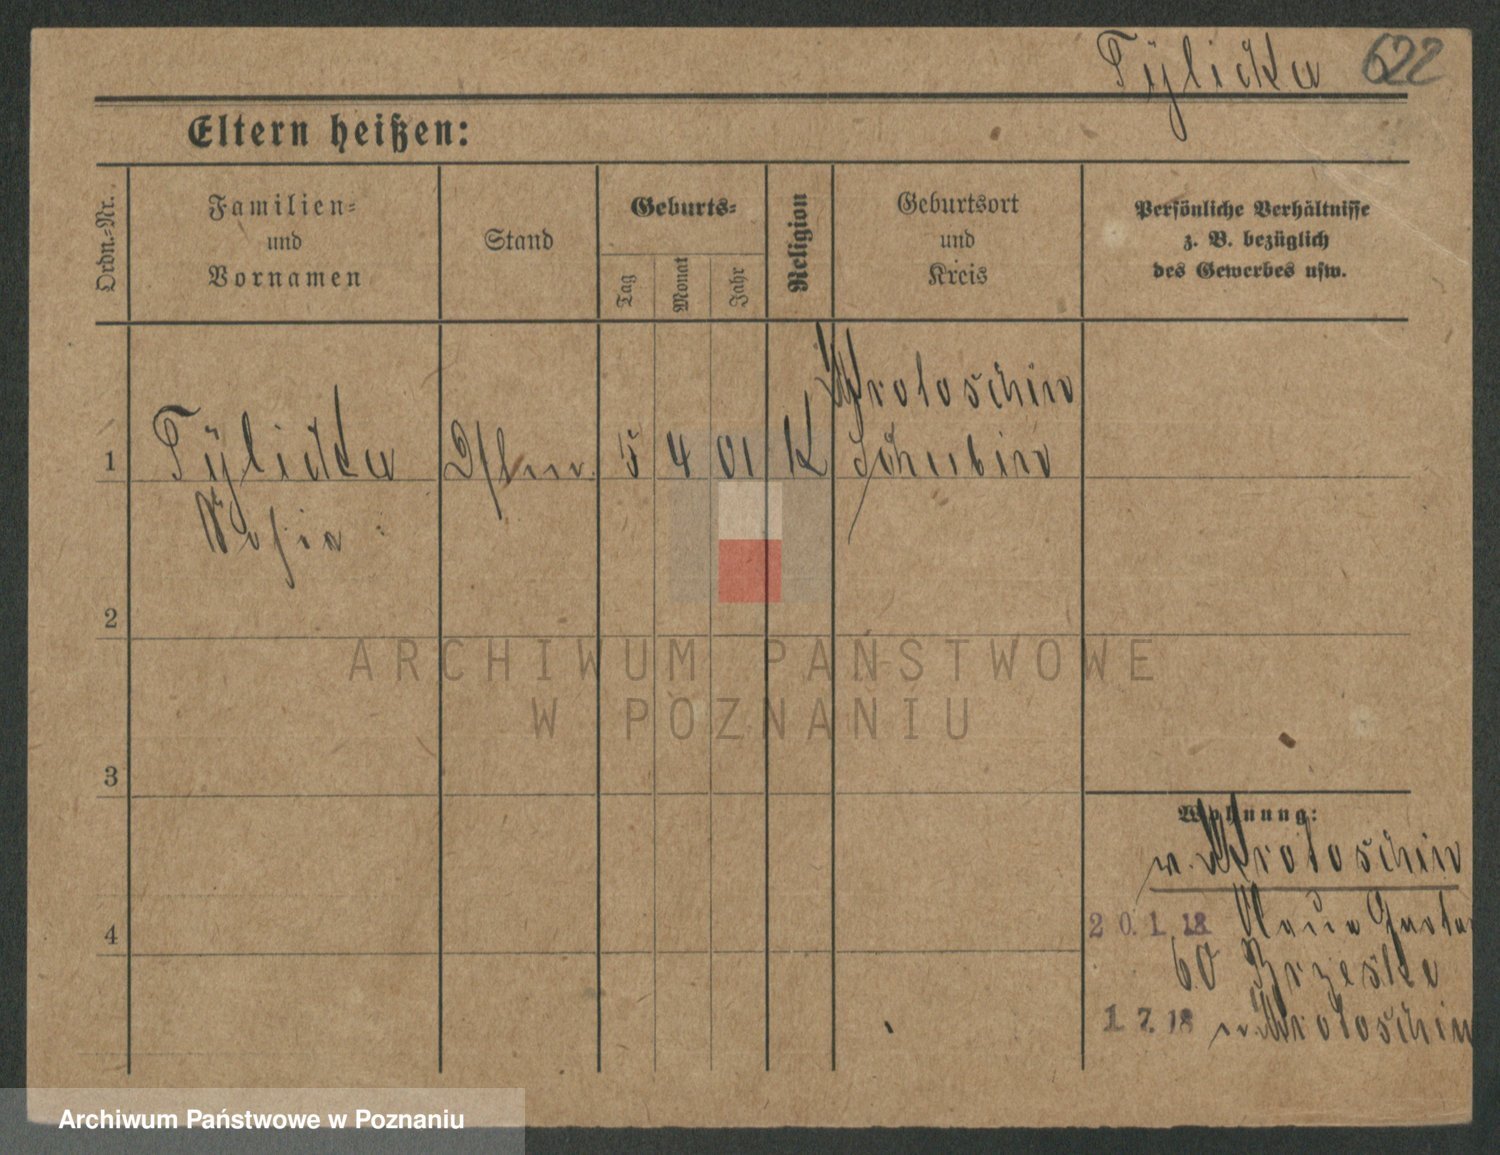 Tylicka 622
Eltern heißen:
Ordn.-Nr.
Familien-
und
Vornamen
Stand
Geburts-
Tag
Monat
Jahr
Religion
Geburtsort
und
Kreis
Persönliche Verhältnisse
z. B. bezüglich
des Gewerbes usw.
Krotoschin
1 Tylicka 5 4 01 K Schubin
Sofia
2
ARCHIWUM PAŃSTWOWE
W POZNANIU
3
Wohnung:
n. Krotoschin
20.1.18
4
60 Brzeske
1.7.18 n. Krotoschin
Archiwum Państwowe w Poznaniu